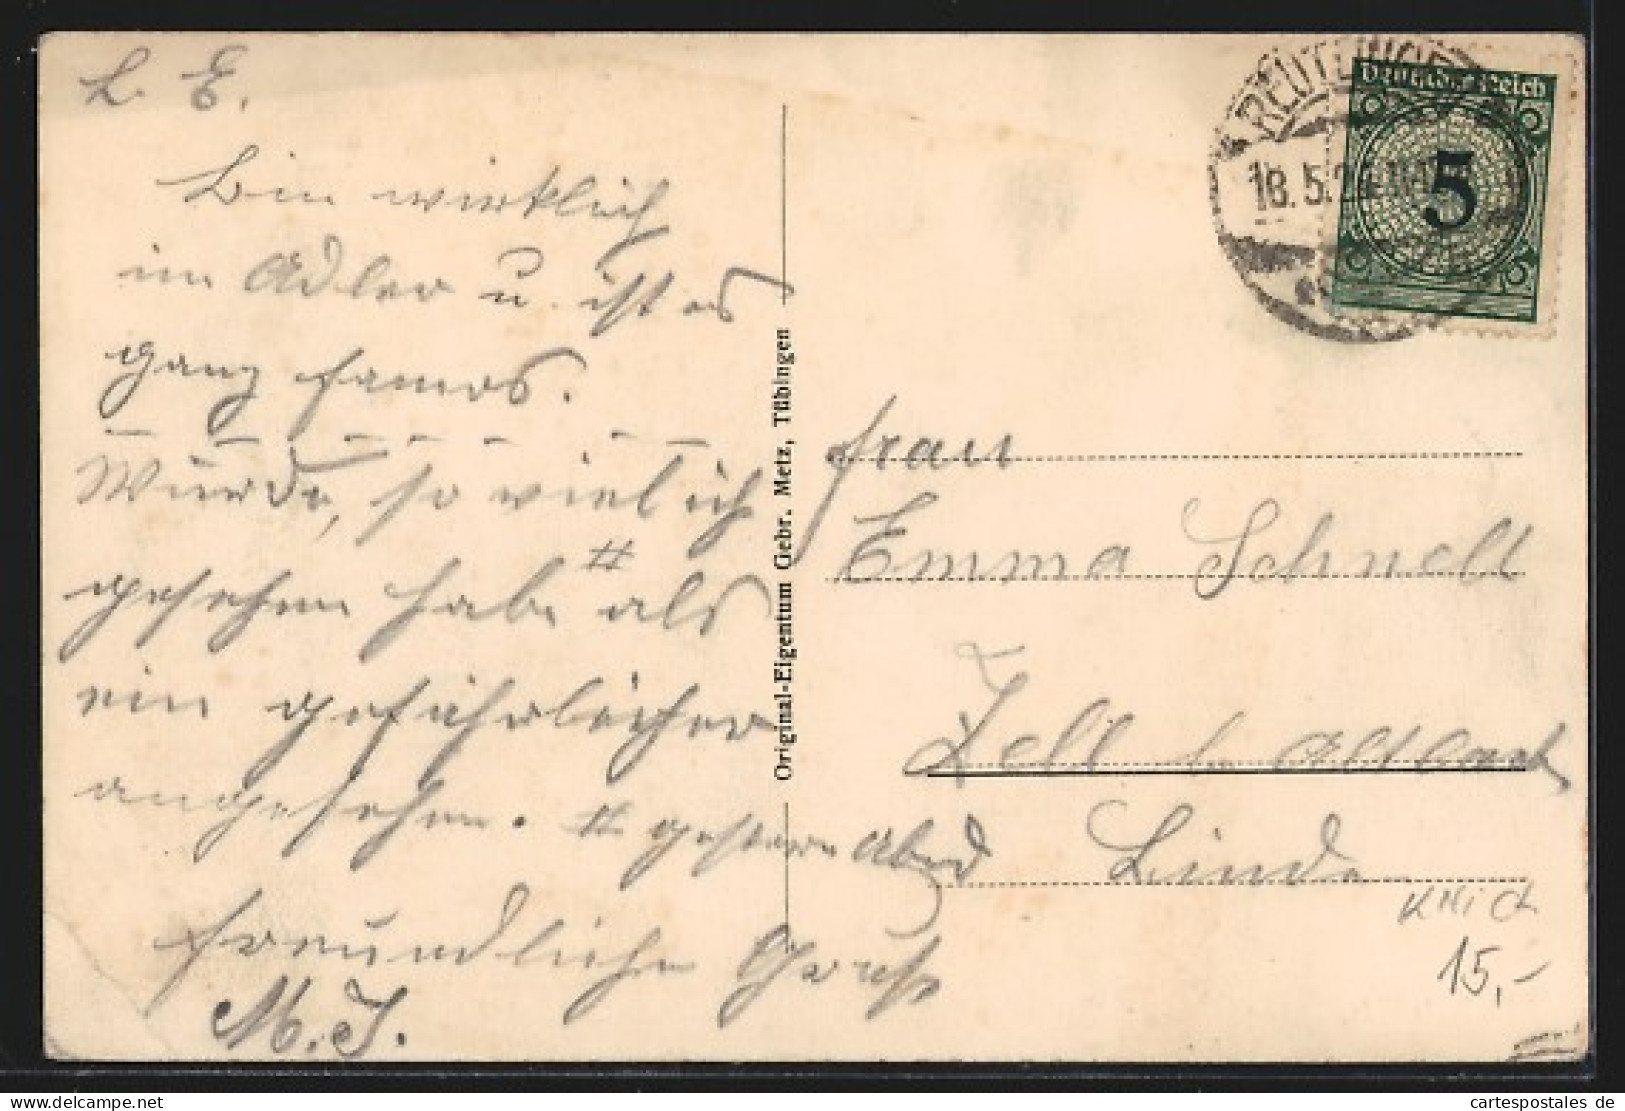 L. E.
Bin wirklich
im Adler u. ist es
ganz famos.
Würde, so viel ich
gesehen habe # als
ein gefährlicher
angesehen. # gestern Abend
freundliche Gruß
M. J.
Original-Eigentum Gebr. Metz, Tübingen
REUTLINGEN
18.5.24
Deutsches Reich
5
Frau
Emma Schnell
Zell b. Altbach
Linde
Knick
15,-
cartespostales de